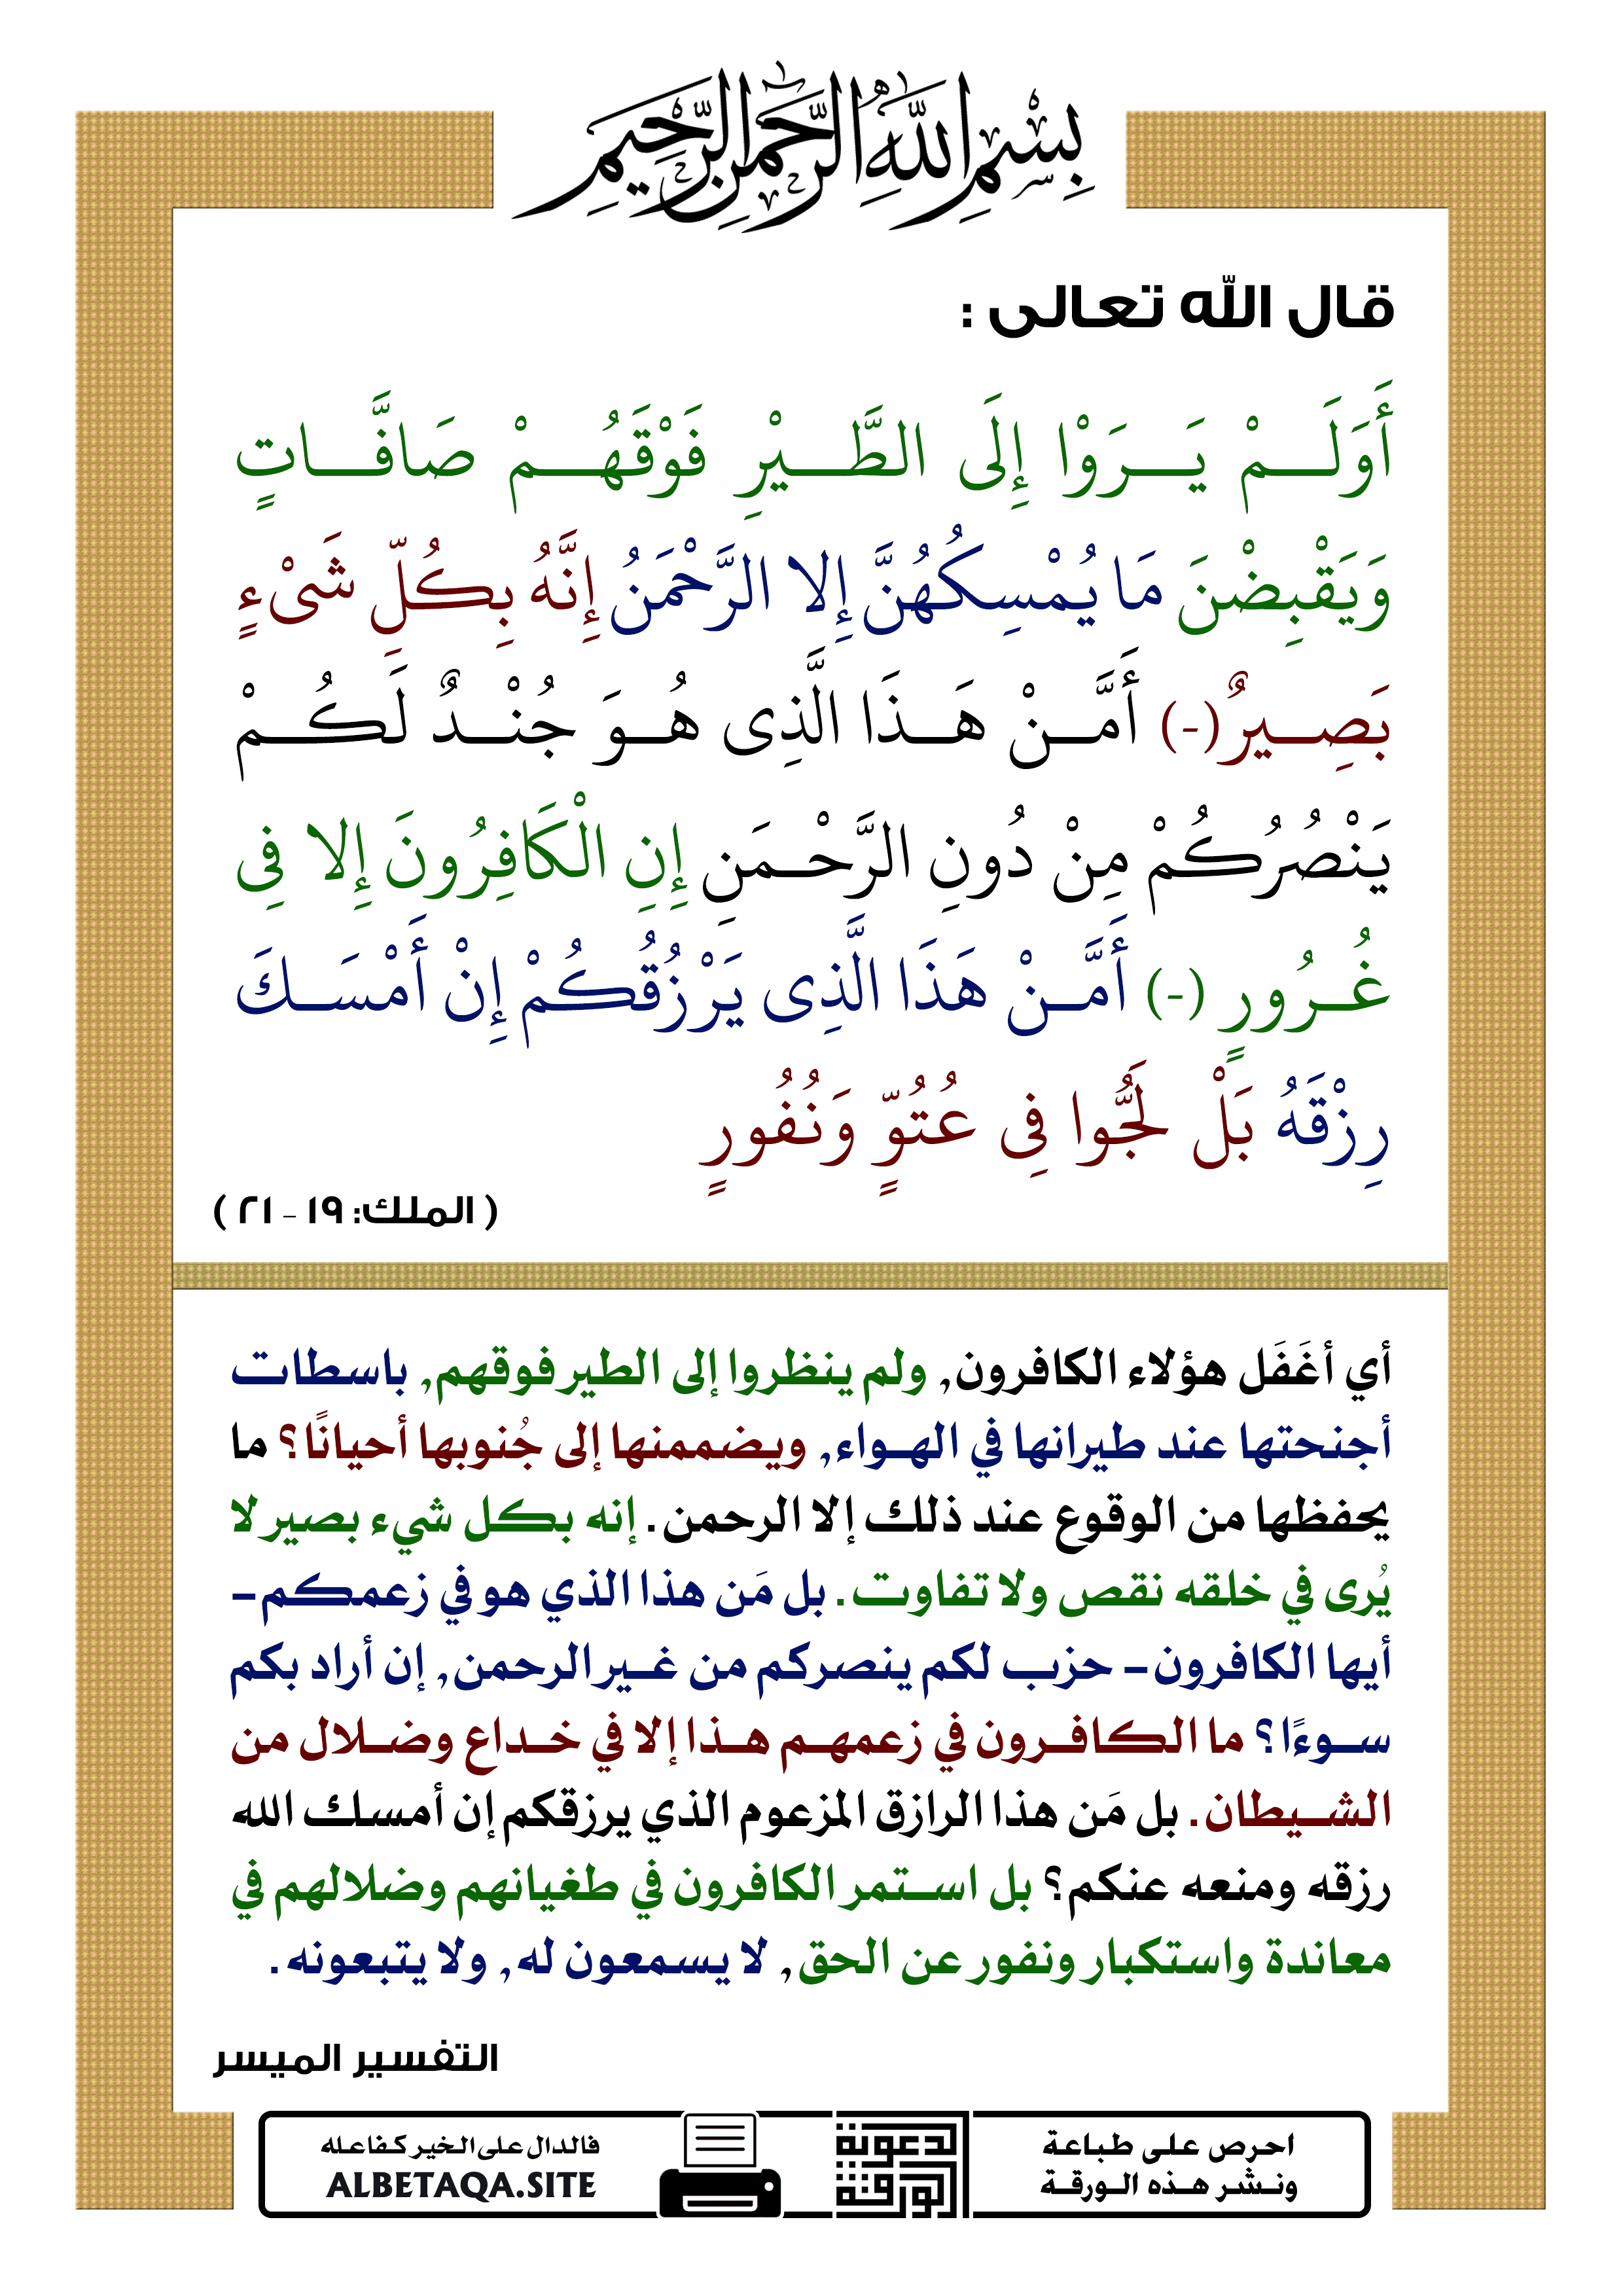 بِسْمِ اللَّهِ الرَّحْمَٰنِ الرَّحِيمِ
قال الله تعالى :
أَوَلَمْ يَرَوْا إِلَى الطَّيْرِ فَوْقَهُمْ صَافَّاتٍ
وَيَقْبِضْنَ مَا يُمْسِكُهُنَّ إِلا الرَّحْمَنُ إِنَّهُ بِكُلِّ شَىْءٍ
بَصِيرٌ(-) أَمَّنْ هَذَا الَّذِى هُوَ جُنْدٌ لَكُمْ
يَنْصُرُكُمْ مِنْ دُونِ الرَّحْمَنِ إِنِ الْكَافِرُونَ إِلا فِى
غُرُورٍ (-) أَمَّنْ هَذَا الَّذِى يَرْزُقُكُمْ إِنْ أَمْسَكَ
رِزْقَهُ بَلْ لَجُّوا فِى عُتُوٍّ وَنُفُورٍ
( الملك: ١٩ - ٢١ )
أي أغَفَل هؤلاء الكافرون, ولم ينظروا إلى الطير فوقهم, باسطات
أجنحتها عند طيرانها في الهواء, ويضممنها إلى جُنوبها أحيانًا؟ ما
يحفظها من الوقوع عند ذلك إلا الرحمن. إنه بكل شيء بصير لا
يُرى في خلقه نقص ولا تفاوت. بل مَن هذا الذي هو في زعمكم-
أيها الكافرون- حزب لكم ينصركم من غير الرحمن, إن أراد بكم
سوءًا؟ ما الكافرون في زعمهم هذا إلا في خداع وضلال من
الشيطان. بل مَن هذا الرازق المزعوم الذي يرزقكم إن أمسك الله
رزقه ومنعه عنكم؟ بل استمر الكافرون في طغيانهم وضلالهم في
معاندة واستكبار ونفور عن الحق, لا يسمعون له, ولا يتبعونه.
التفسير الميسر
احرص على طباعة
ونشر هذه الورقة
الدعوية
الورقة
فالدال على الخير كفاعله
ALBETAQA.SITE